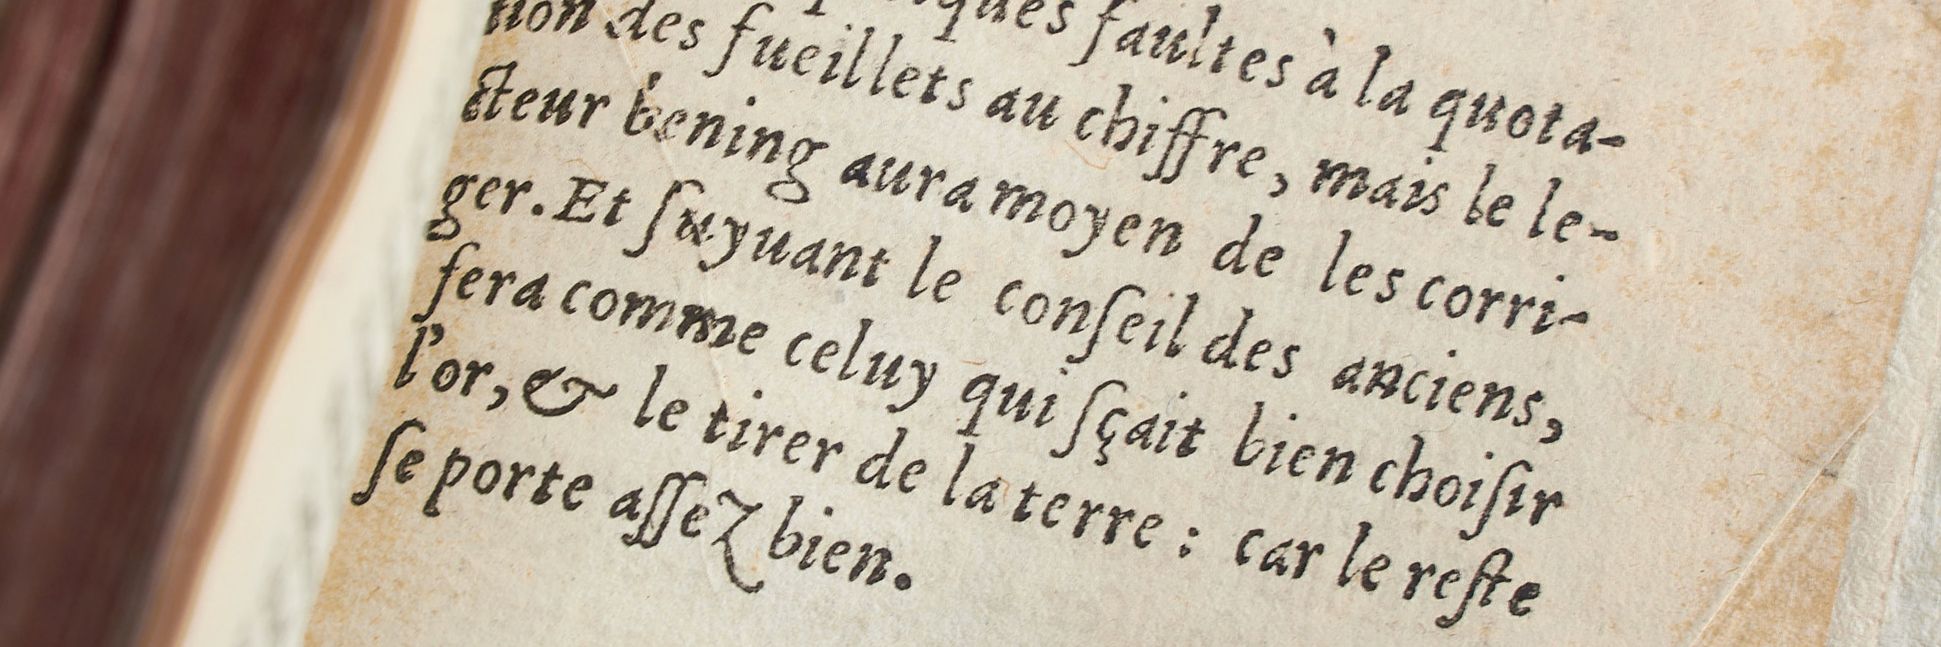 faultes à la quota-
tion des fueillets au chiffre, mais le le-
cteur bening aura moyen de les corri-
ger. Et ſuyuant le conſeil des anciens,
fera comme celuy qui ſçait bien choiſir
l'or, & le tirer de la terre : car le reſte
ſe porte aſſez bien.